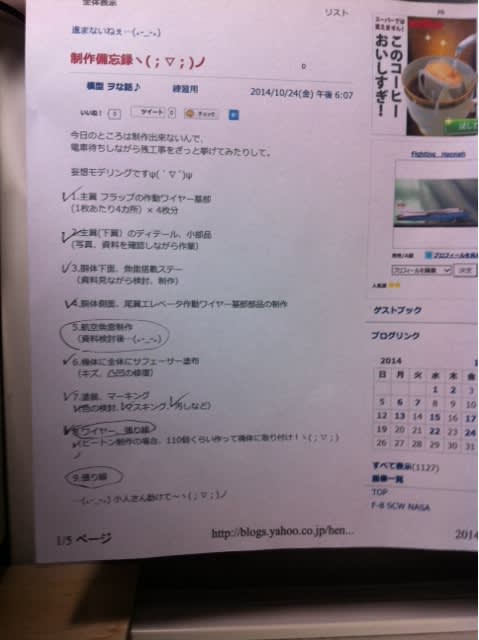 全体表示
リスト
進まないねぇ…(｡-_-｡)
制作備忘録ヽ(；▽；)ノ
模型 ヲな話♪
練習用
2014/10/24(金) 午後 6:07
いいね！ 0
ツイート 0
チェック
今日のところは制作出来ないんで、
電車待ちしながら残工事をざっと挙げてみたりして。
妄想モデリングですψ(｀▽´)ψ
1.主翼 フラップの作動ワイヤー基部
(1枚あたり4カ所) × 4枚分
2.主翼(下翼) のディテール、小部品
(写真、資料を確認しながら作業)
3.胴体下面、魚雷搭載ステー
(資料見ながら検討、制作)
4.胴体側面、尾翼エレベータ作動ワイヤー基部部品の制作
5.航空魚雷制作
(資料検討後…(｡-_-｡)
6.機体に全体にサフェーサー塗布
(キズ、凸凹の修復)
7.塗装、マーキング
(色の検討、マスキング、汚しなど)
8.ワイヤー、張り線
ビートン制作の場合、110個くらい作って機体に取り付け！ヽ(；▽；)
ノ
9.張り線
…(｡-_-｡) 小人さん助けて〜ヽ(；▽；)ノ
1/5 ページ
http://blogs.yahoo.co.jp/hen...
2014
PR
スーパーでは
買えません！
このコーヒー
おいしすぎ！
Fighting Hannah
プロフィールを検索
決定
人気度
ゲストブック
ブログリンク
2014
日 月 火 水 木
1 2
5 6 7 8 9
12 13 14 15 16
19 20 21 22 23
26 27 28 29 30
すべて表示(1127)
画像一覧
TOP
F-8 SCW NASA